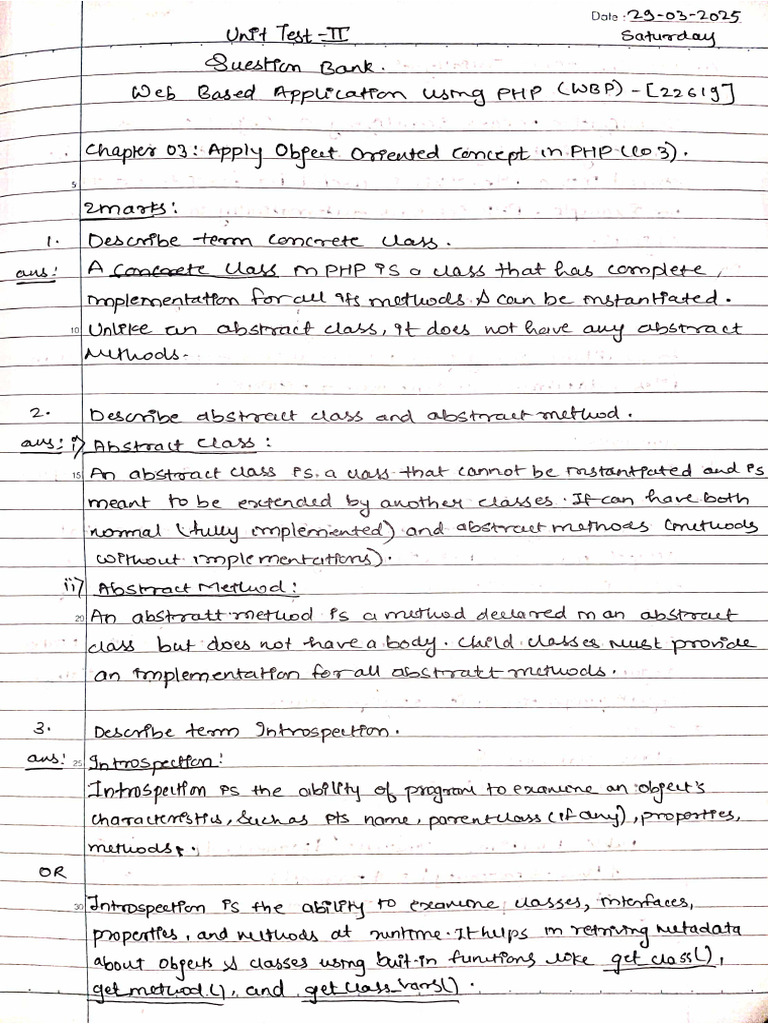 Date : 29-03-2025
Unit Test-II
Saturday
Question Bank.
Web Based Application using PHP (WBP) - [22619]
Chapter 03: Apply Object Oriented Concept in PHP (CO3).
5
2marks:
1. Describe term concrete class.
ans: A Concrete Class in PHP is a class that has complete
implementation for all its methods & can be instantiated.
10 Unlike an abstract class, it does not have any abstract
Methods.
2. Describe abstract class and abstract method.
ans: i) Abstract Class :
15 An abstract class is a class that cannot be instantiated and is
meant to be extended by another classes. It can have both
normal (fully implemented) and abstract methods (methods
without implementations).
ii) Abstract Method :
20 An abstratt method is a method declared in an abstract
class but does not have a body. Child classes must provide
an implementation for all abstratt methods.
3. Describe term Introspection.
ans: 25 Introspection :
Introspection is the ability of program to examine an object's
characteristics, such as its name, parent class (if any), properties,
methods.
OR
30 Introspection is the ability to examine classes, interfaces,
properties, and methods at runtime. It helps in retriving metadata
about objects & classes using buit-in functions like get class(),
get method(), and get class_vars().